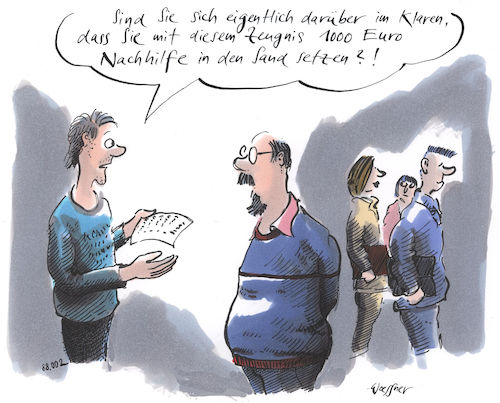 Sind Sie sich eigentlich darüber im Klaren,
dass Sie mit diesem Zeugnis 1000 Euro
Nachhilfe in den Sand setzen?!
Woessner